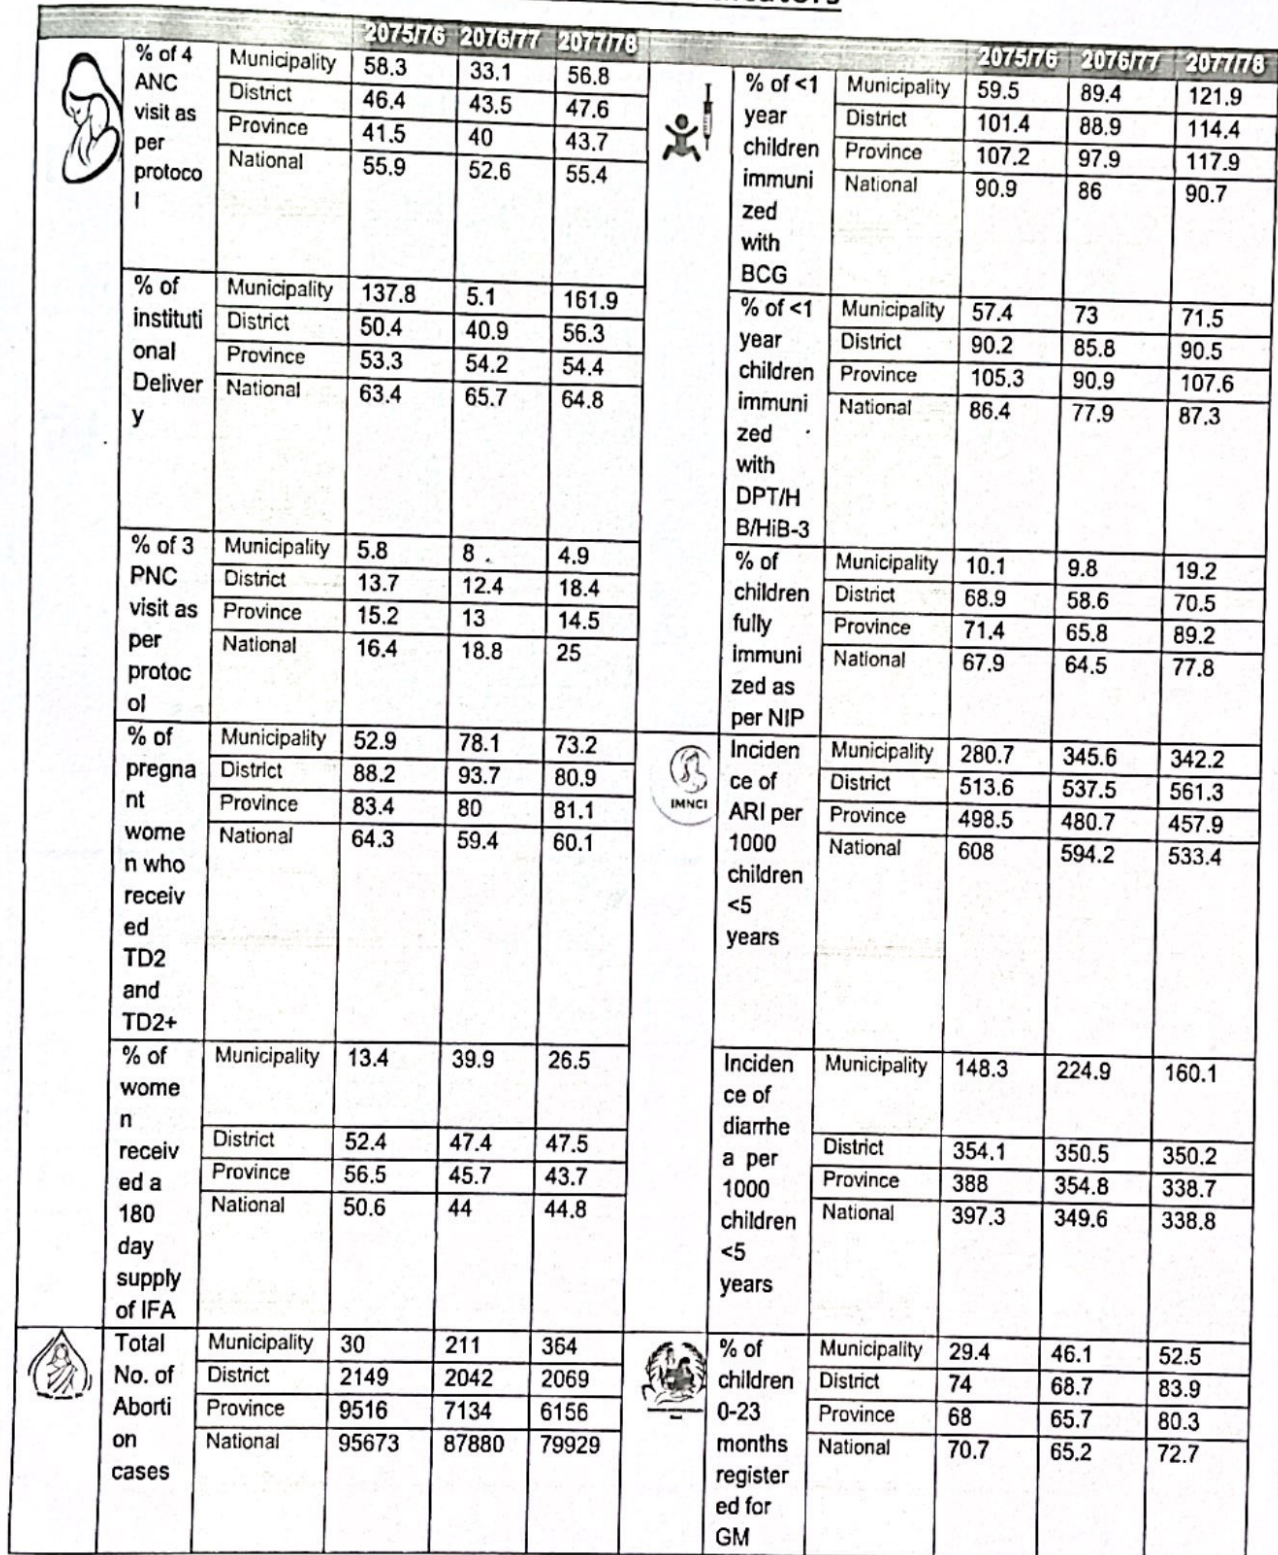 2075/76 2076/77 2077/78
% of 4
ANC
visit as
per
protoco
l
Municipality 58.3 33.1 56.8
District 46.4 43.5 47.6
Province 41.5 40 43.7
National 55.9 52.6 55.4
% of
instituti
onal
Deliver
y
Municipality 137.8 5.1 161.9
District 50.4 40.9 56.3
Province 53.3 54.2 54.4
National 63.4 65.7 64.8
% of 3
PNC
visit as
per
protoc
ol
Municipality 5.8 8 4.9
District 13.7 12.4 18.4
Province 15.2 13 14.5
National 16.4 18.8 25
% of
pregna
nt
wome
n who
receiv
ed
TD2
and
TD2+
Municipality 52.9 78.1 73.2
District 88.2 93.7 80.9
Province 83.4 80 81.1
National 64.3 59.4 60.1
% of
wome
n
receiv
ed a
180
day
supply
of IFA
Municipality 13.4 39.9 26.5
District 52.4 47.4 47.5
Province 56.5 45.7 43.7
National 50.6 44 44.8
Total
No. of
Aborti
on
cases
Municipality 30 211 364
District 2149 2042 2069
Province 9516 7134 6156
National 95673 87880 79929
2075/76 2076/77 2077/78
% of <1
year
children
immuni
zed
with
BCG
Municipality 59.5 89.4 121.9
District 101.4 88.9 114.4
Province 107.2 97.9 117.9
National 90.9 86 90.7
% of <1
year
children
immuni
zed
with
DPT/H
B/HiB-3
Municipality 57.4 73 71.5
District 90.2 85.8 90.5
Province 105.3 90.9 107.6
National 86.4 77.9 87.3
% of
children
fully
immuni
zed as
per NIP
Municipality 10.1 9.8 19.2
District 68.9 58.6 70.5
Province 71.4 65.8 89.2
National 67.9 64.5 77.8
IMNCI
Inciden
ce of
ARI per
1000
children
<5
years
Municipality 280.7 345.6 342.2
District 513.6 537.5 561.3
Province 498.5 480.7 457.9
National 608 594.2 533.4
Inciden
ce of
diarrhe
a per
1000
children
<5
years
Municipality 148.3 224.9 160.1
District 354.1 350.5 350.2
Province 388 354.8 338.7
National 397.3 349.6 338.8
% of
children
0-23
months
register
ed for
GM
Municipality 29.4 46.1 52.5
District 74 68.7 83.9
Province 68 65.7 80.3
National 70.7 65.2 72.7